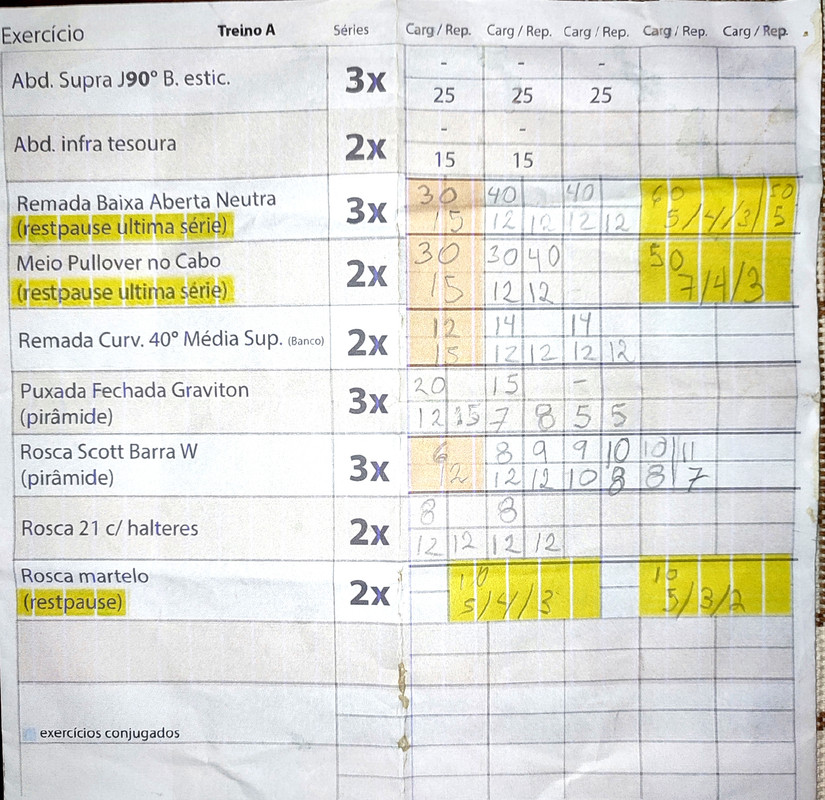 Exercício Treino A Séries Carg / Rep. Carg / Rep. Carg / Rep. Carg / Rep. Carg / Rep.
Abd. Supra J90° B. estic. 3x - - -
25 25 25
Abd. infra tesoura 2x - -
15 15
Remada Baixa Aberta Neutra 3x 30 40 40 60 50
(restpause ultima série) 15 12 12 12 12 5/4/3/ 5
Meio Pullover no Cabo 2x 30 30 40 50
(restpause ultima série) 15 12 12 - 7/4/3
Remada Curv. 40° Média Sup. (Banco) 2x 12 14 14
15 12 12 12 12
Puxada Fechada Graviton 3x 20 15 -
(pirâmide) 12 15 7 8 5 5
Rosca Scott Barra W 3x 6 8 9 9 10 10 11
(pirâmide) 12 12 12 10 8 8 7
Rosca 21 c/ halteres 2x 8 8
12 12 12 12
Rosca martelo 2x 10 10
(restpause) 5/4/3 5/3/2
exercícios conjugados